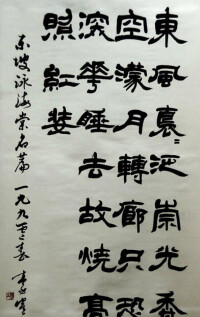 東風裊〻泛崇光香
空濛月轉廊只恐
深花睡去故燒高
照紅妝
东坡詠海棠名篇 一九九